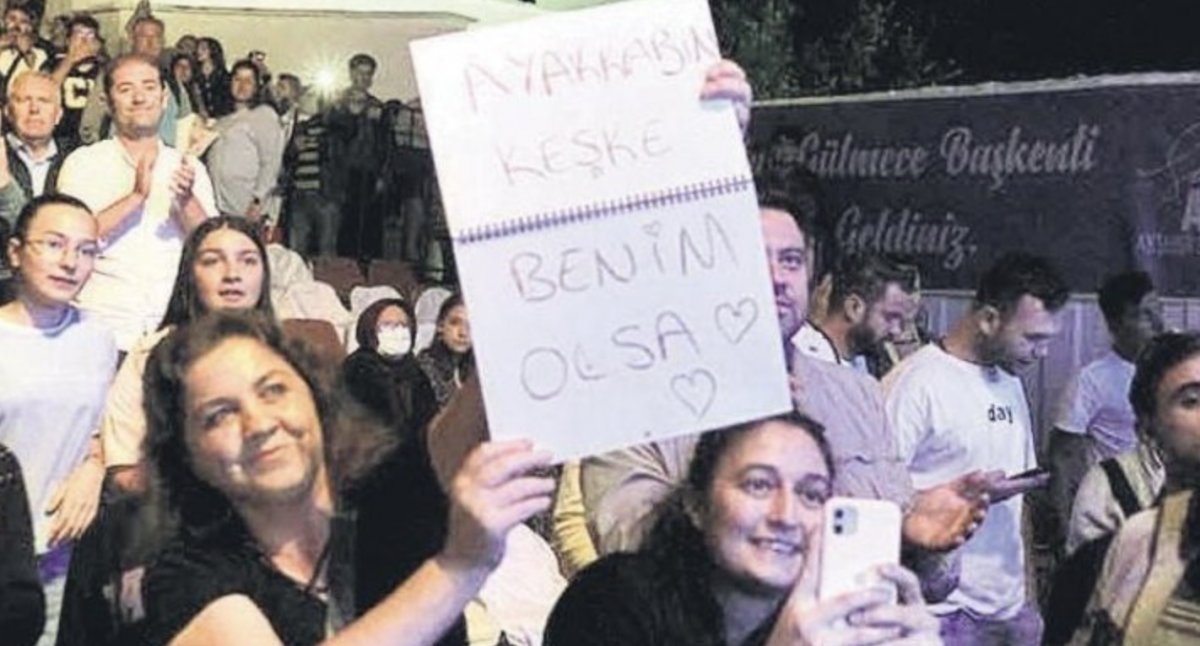 AYAKKABIN
KEŞKE
BENİM
OLSA
Gülmece Başkenti
Geldiniz.
day